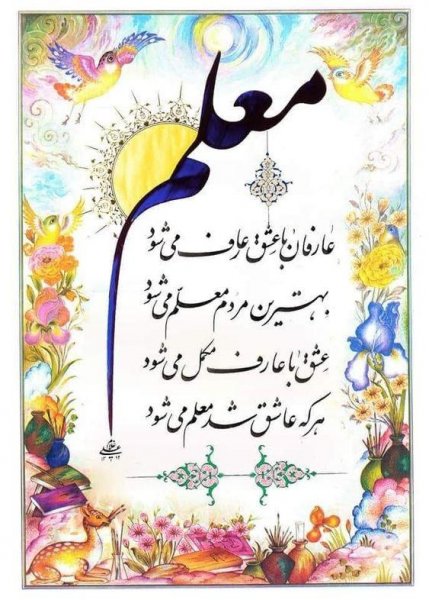 معلم
عارفان با عشق عارف می شود
بهترین مردم معلّم می شود
عشق با عارف مکمل می شود
هر که عاشق شد معلم می شود